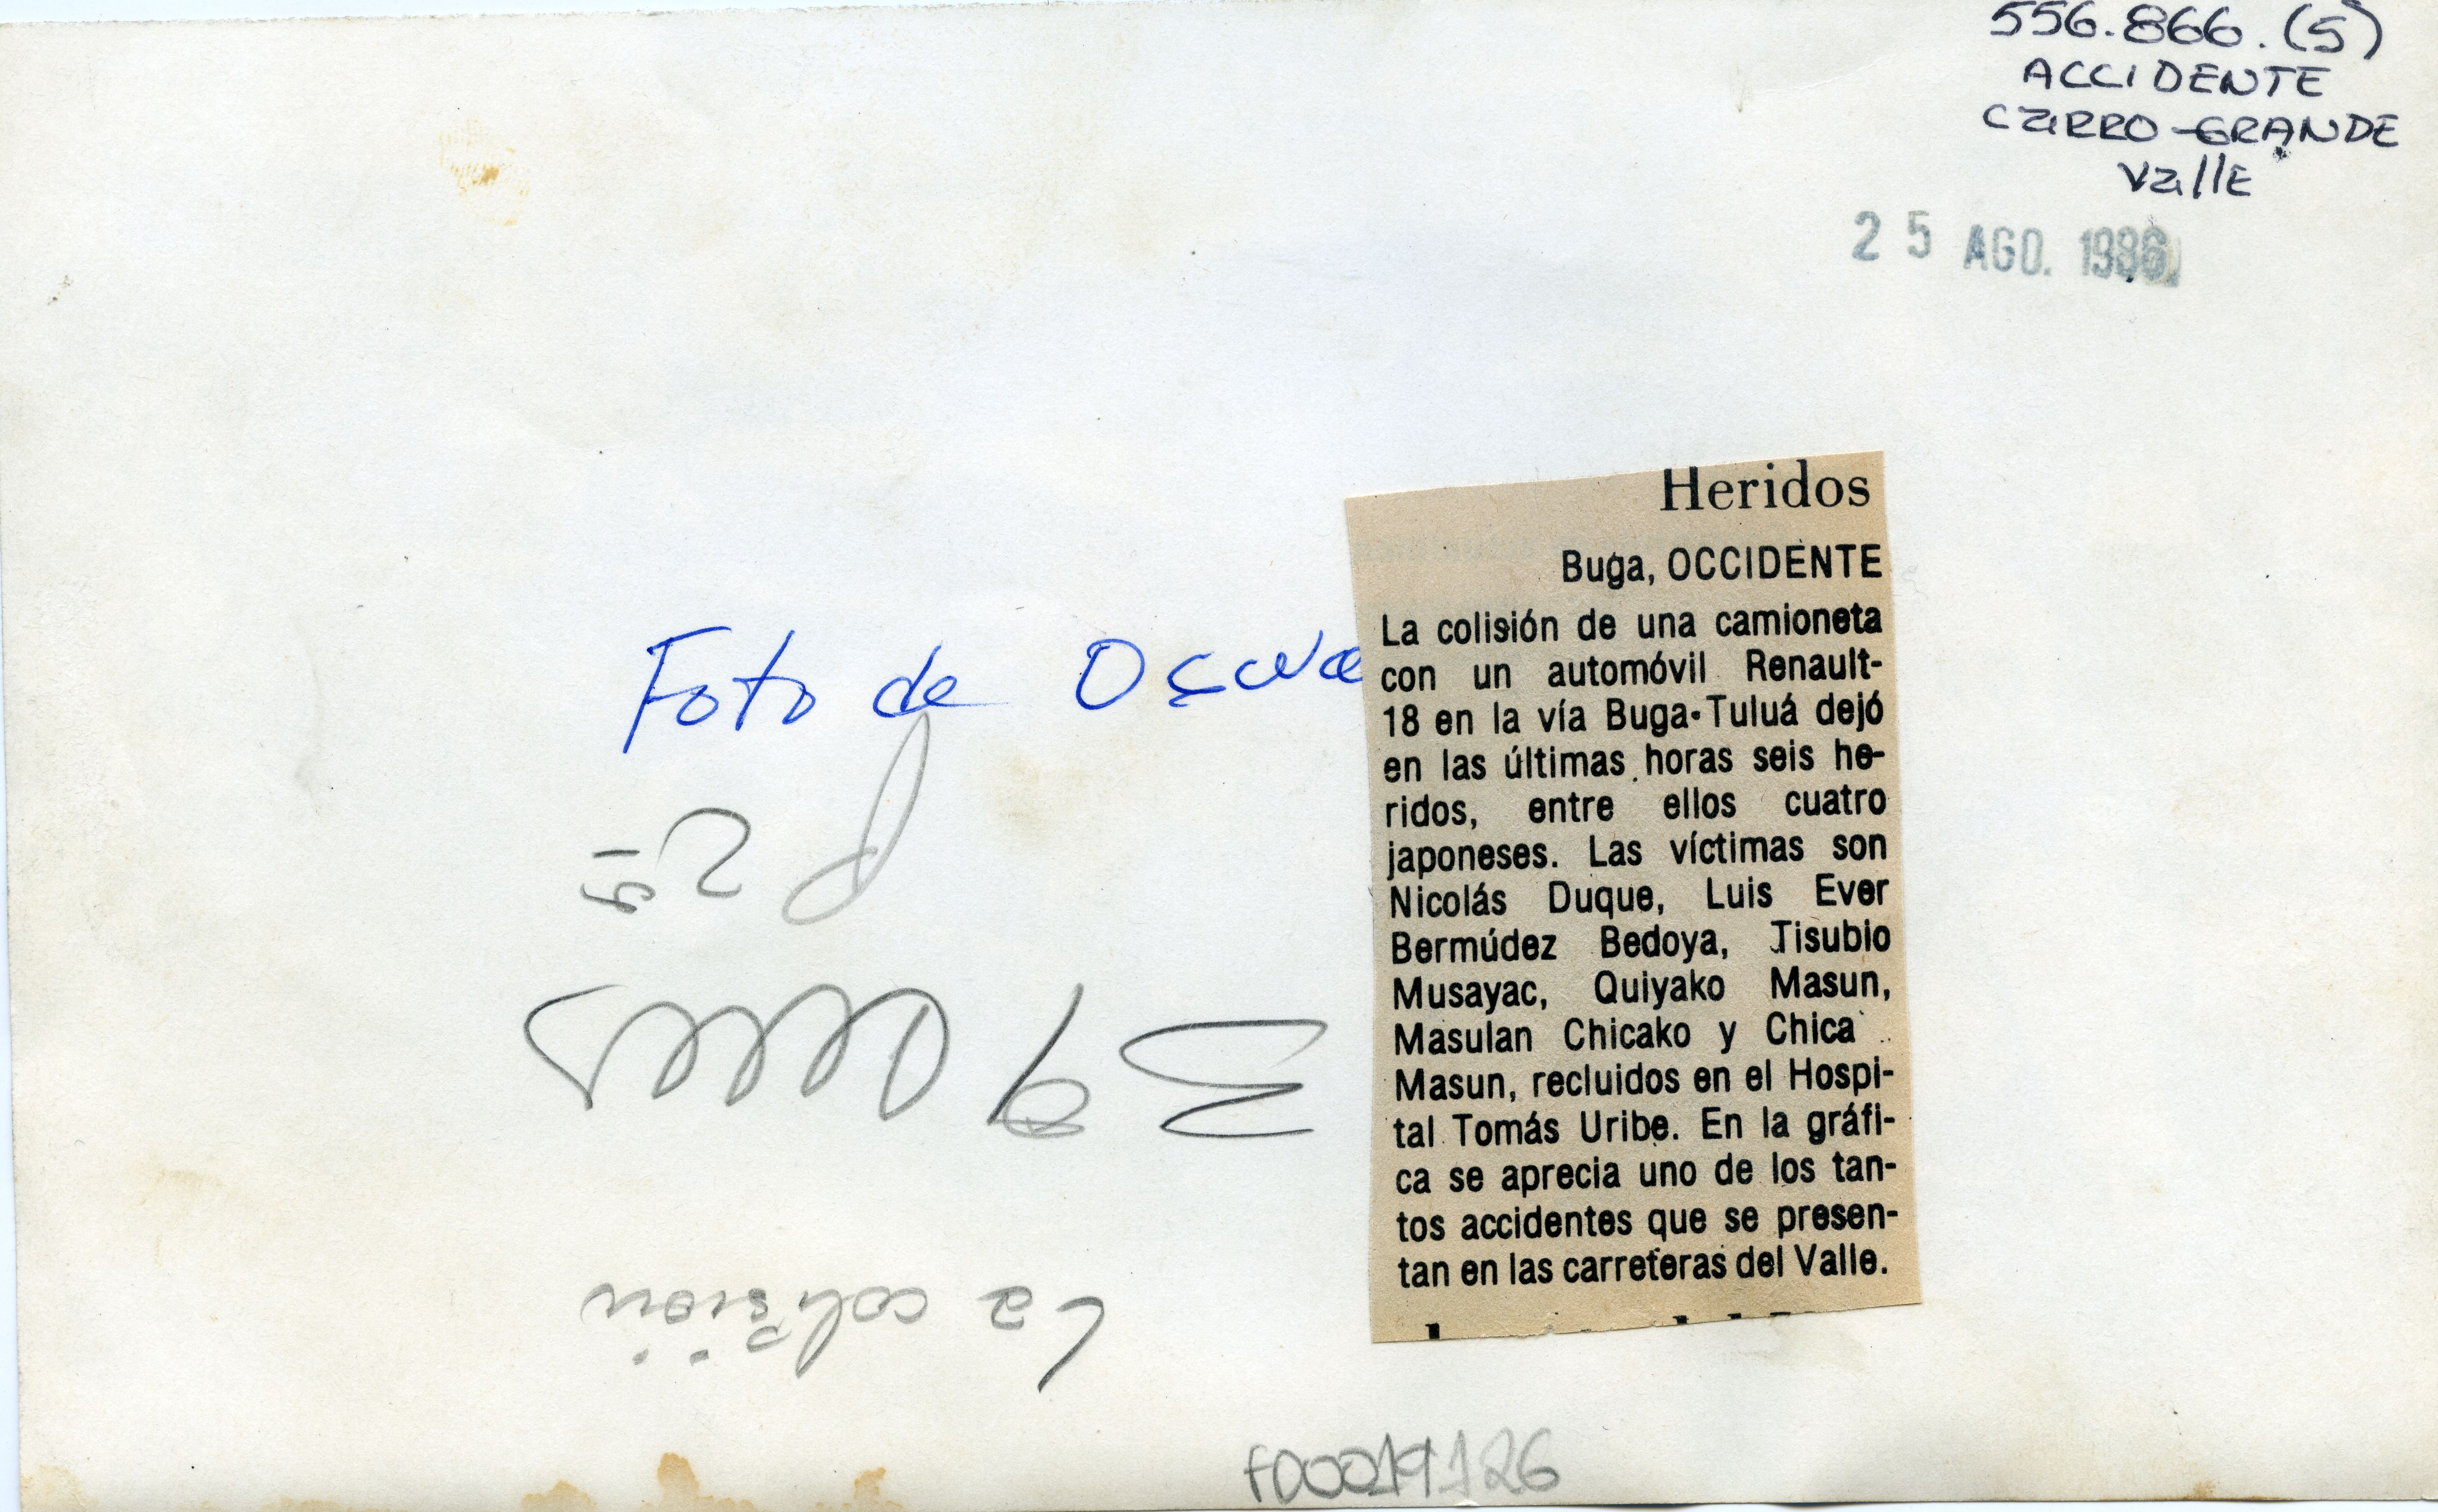 556.866.(5)
ACCIDENTE
CARRO-GRANDE
VallE
25 AGO. 1986
Foto de
Heridos
Buga, OCCIDENTE
La colisión de una camioneta
con un automóvil Renault-
18 en la vía Buga-Tuluá dejó
en las últimas horas seis he-
ridos, entre ellos cuatro
japoneses. Las víctimas son
Nicolás Duque, Luis Ever
Bermúdez Bedoya, Tisubio
Musayac, Quiyako Masun,
Masulan Chicako y Chica
Masun, recluidos en el Hospi-
tal Tomás Uribe. En la gráfi-
ca se aprecia uno de los tan-
tos accidentes que se presen-
tan en las carreteras del Valle.
La colisión
F00019126